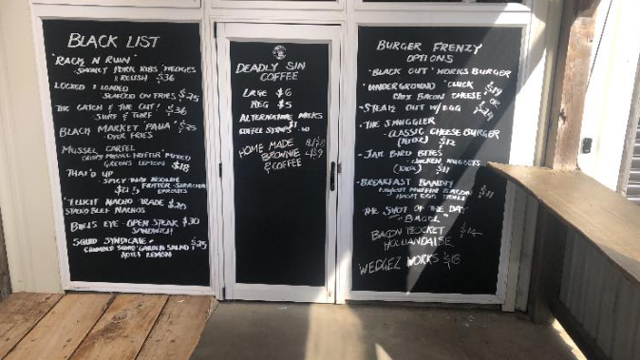 BLACK LIST
"RACK N RUIN"
SMOKEY PORK RIBS WEDGES
& RELISH $36
LOCKED & LOADED
SEAFOOD ON FRIES $25
THE CATCH & THE CUT!
SURF & TURF $36
BLACK MARKET $25
OVER FRIES
MUSSEL CARTEL
MUSSEL FRITTER
GREENS LEMON $18
SPICY
FRITTER SRIRACHA
NACHO TRADE $20
BEEF NACHOS
BULLS EYE - OPEN STEAK $30
SANDWICH
SQUID SYNDICATE $25
SQUID GARDEN SALAD &
LEMON
DEADLY SIN
COFFEE
LRGE $6
REG $5
ALTERNATIVE MILKS
$1
HOME MADE
BROWNIE
& COFFEE
BURGER FRENZY
OPTIONS
"BLACK OUT" WORKS BURGER
"UNDERGROUND" CLUCK
BACON CHEESE $19
OR
STEAK OUT W/ EGG
THE SMUGGLER
CLASSIC CHEESE BURGER
$12
JAIL BIRD BITES
CHICKEN NUGGETS
$11
BREAKFAST BANDIT
THE SHOT OF THE DAY
"BAGEL"
BACON ROCKET $14
HOLLANDAISE
WEDGEZ WORKS $18